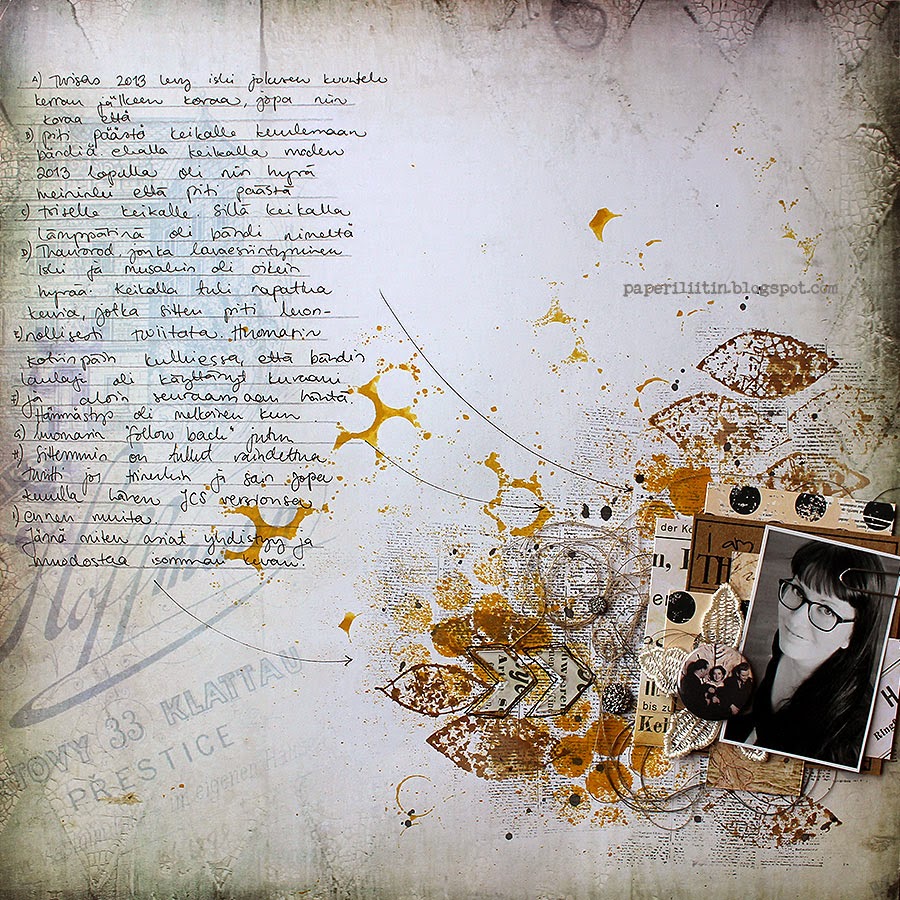 A) Turisas 2013 levy iski jokusen kuuntelu
kerran jälkeen kovaa, jopa niin
kovaa että
B) piti päästä keikalle kuulemaan
bändiä. ekalla keikalla
2013 lopulla oli niin hyvä
meininki että piti päästä
C) toiselle keikalle. Sillä keikalla
lämppärinä oli bändi nimeltä
D) Thaurorod, jonka lavaesiintyminen
iski ja musakin oli oikein
hyvää. Keikalla tuli napattua
kuvia, jotka sitten piti luon-
E) nollisesti twiitata. Huomasin
kotiinpäin kulkiessa, että bändin
laulaja oli käyttänyt kuvaani
F) ja aloin seuraamaan häntä
Hämmästys oli melkoinen kun
G) huomasin "follow back" jutun
H) Sittemmin on tullut vaihdettua
twiitti jos toinenkin ja sain jopa
kuulla hänen JCS versionsa
I) ennen muita.
Jännä miten asiat yhdistyy ja
muodostaa isomman kuvan.
paperiliitin.blogspot.com
der Ko
n, I
I am
TH
en
Il
bis zu
Kei
H
Ring
Hoffman
TOVY 33 KLATTAU
PRESTICE
in eigenen